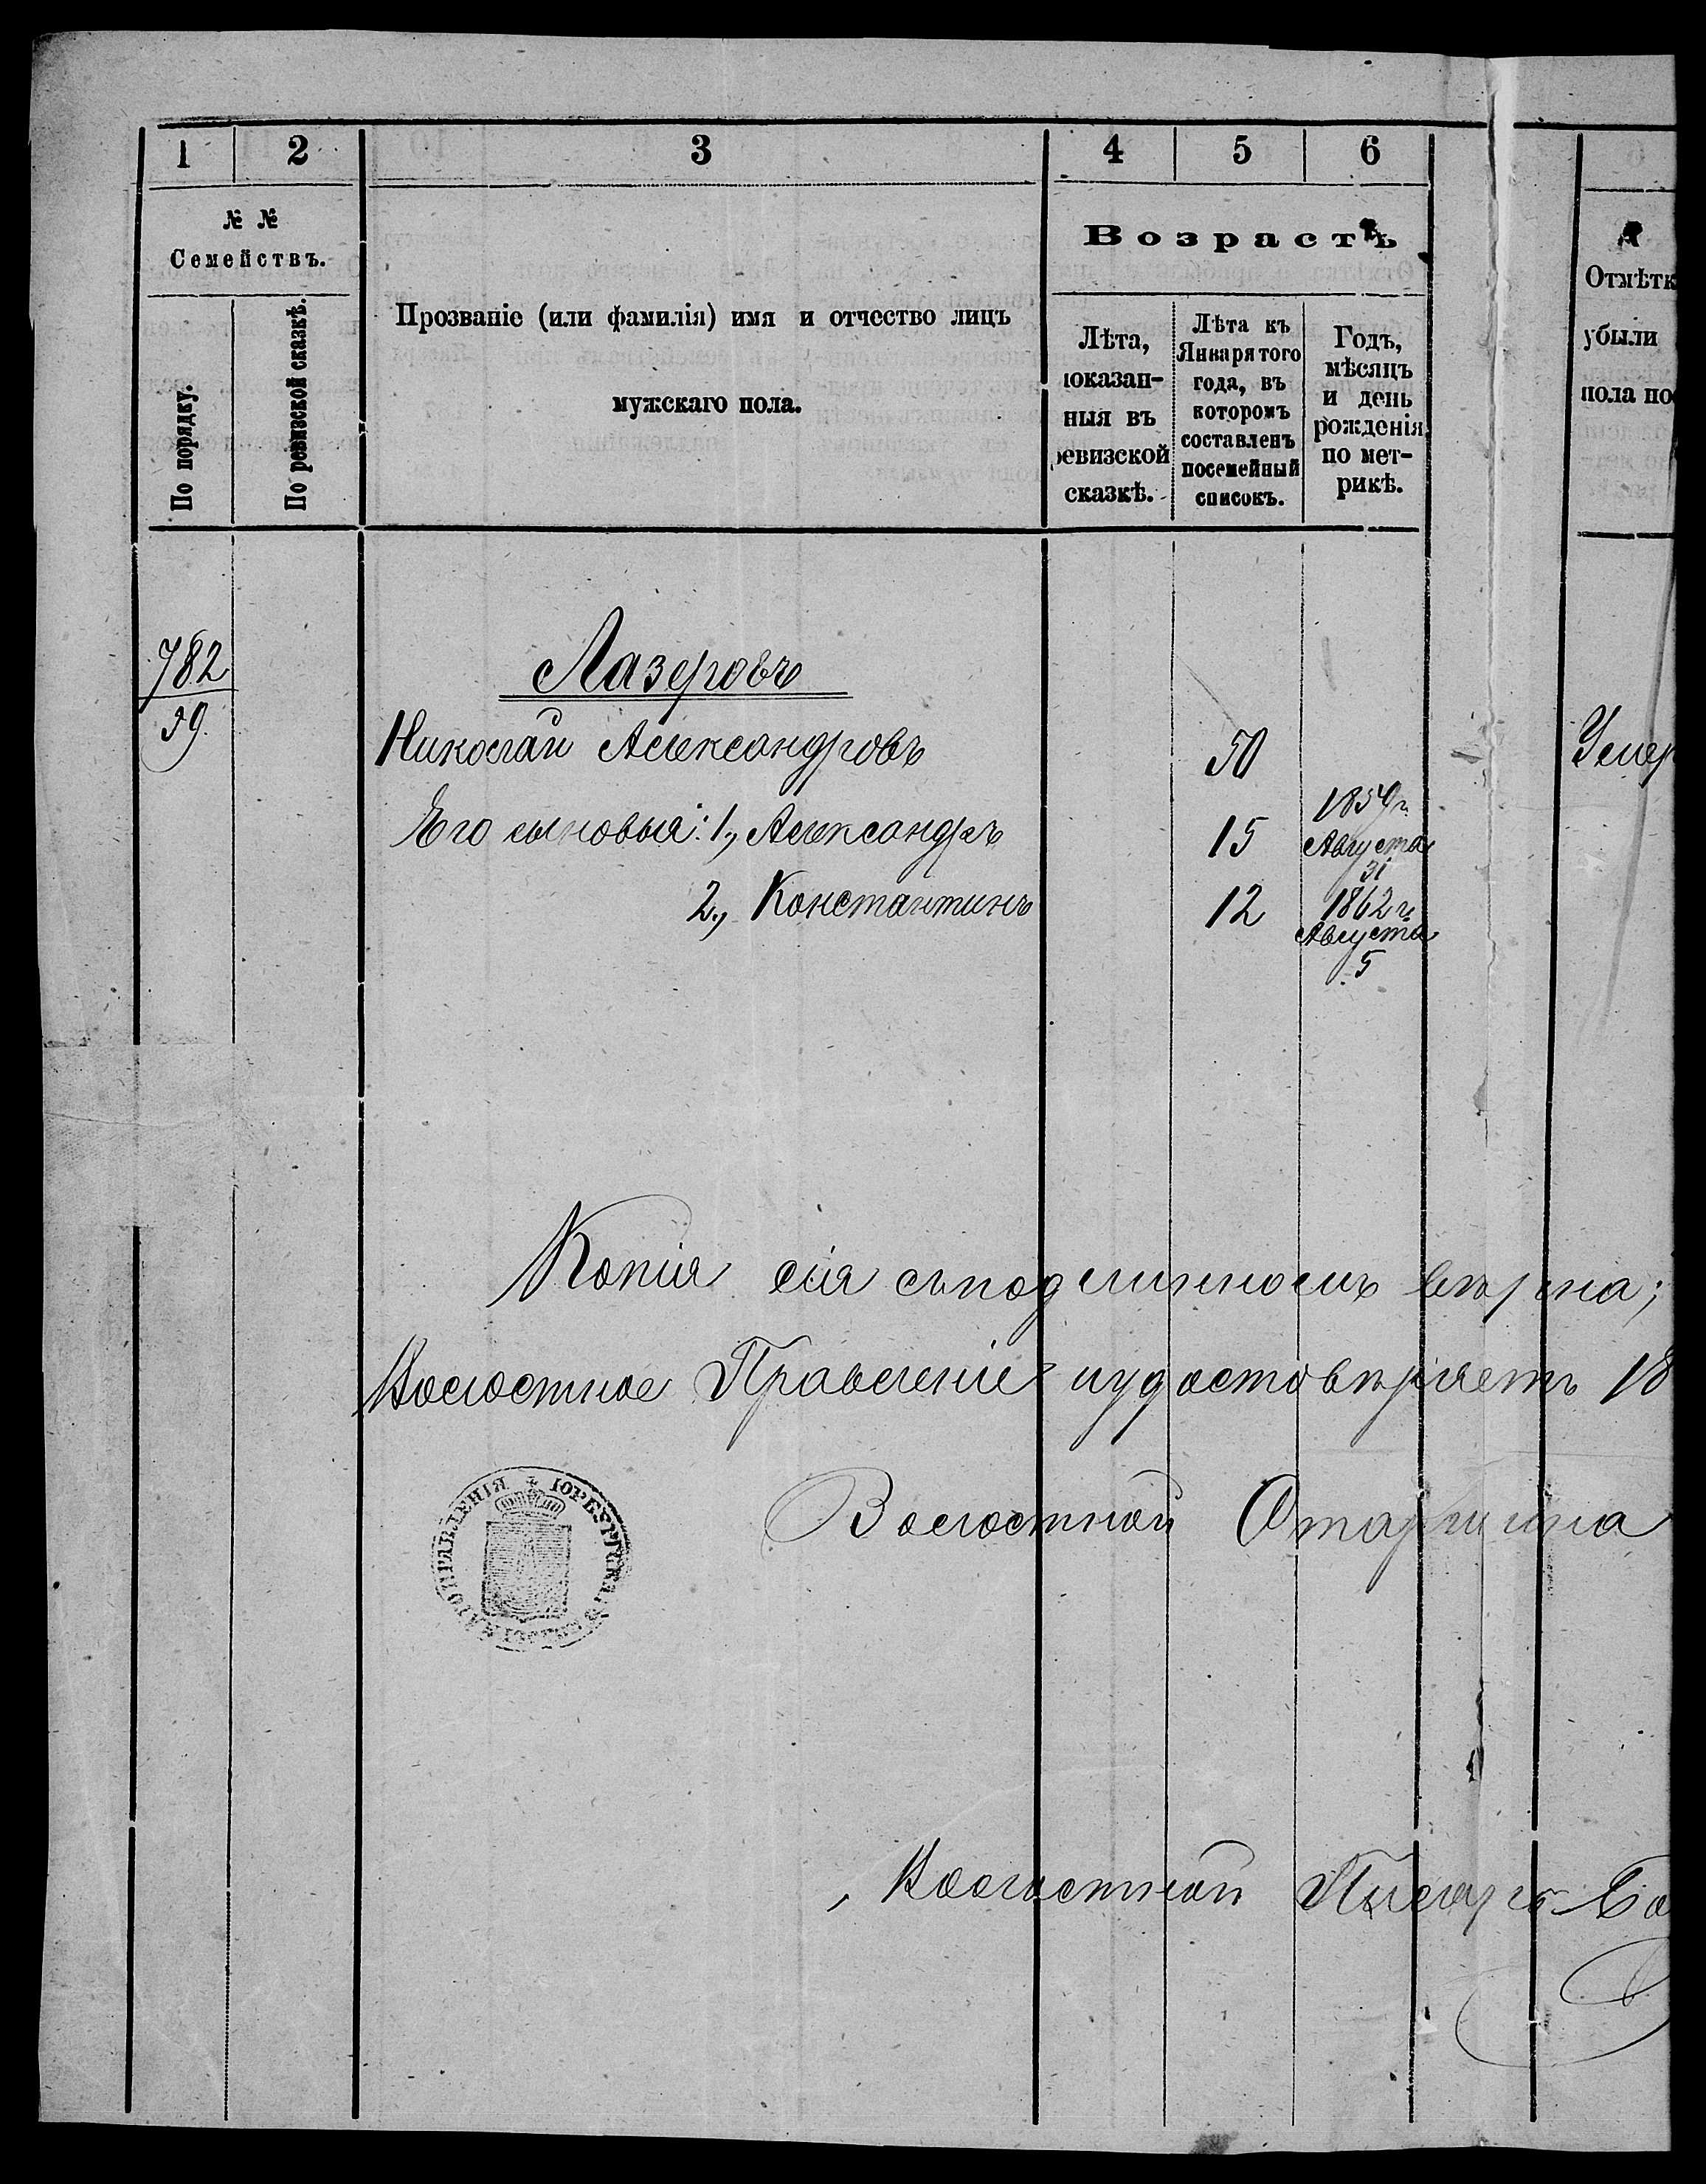 1 2 3 4 5 6
№ №
Семействъ.
По порядку.
По ревизской сказкѣ.
Прозваніе (или фамилія) имя и отчество лицъ
мужскаго пола.
Возрастъ
Лѣта,
показан-
ныя въ
ревизской
сказкѣ.
Лѣта къ
Января того
года, въ
которомъ
составленъ
посемейный
списокъ.
Годъ,
мѣсяцъ
и день
рожденія
по мет-
рикѣ.
Отмѣтк
убыли
пола по
782
59
Лазеровъ
Николай Александровъ 50 Умер
Его сыновья: 1, Александръ 15
1859 г.
Августа
31
2, Константинъ 12
1862 г.
Августа
5
Копія сія съ подлинномъ вѣрна;
Волостное Правленіе и удостовѣряетъ 18
Волостной Старшина
Волостной Писарь
ПРАВЛЕНІЯ